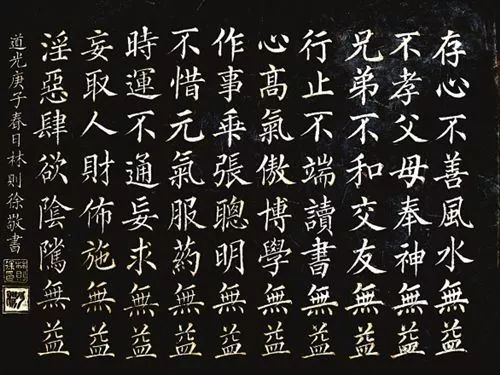 存心不善風水無益
不孝父母奉神無益
兄弟不和交友無益
行止不端讀書無益
心髙氣傲博學無益
作事乖張聰明無益
不惜元氣服藥無益
時運不通妄求無益
妄取人財佈施無益
淫惡肆欲陰隲無益
道光庚子春日林則徐敬書